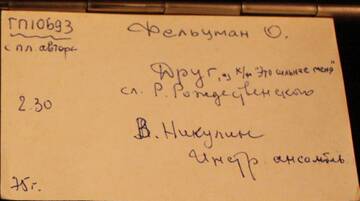 ГП10693
с пл. автора
Фельцман О.
Друг, из к/ф "Это сильнее меня"
сл. Р. Рождественского
2.30
В. Никулин
Инстр ансамбль
75г.